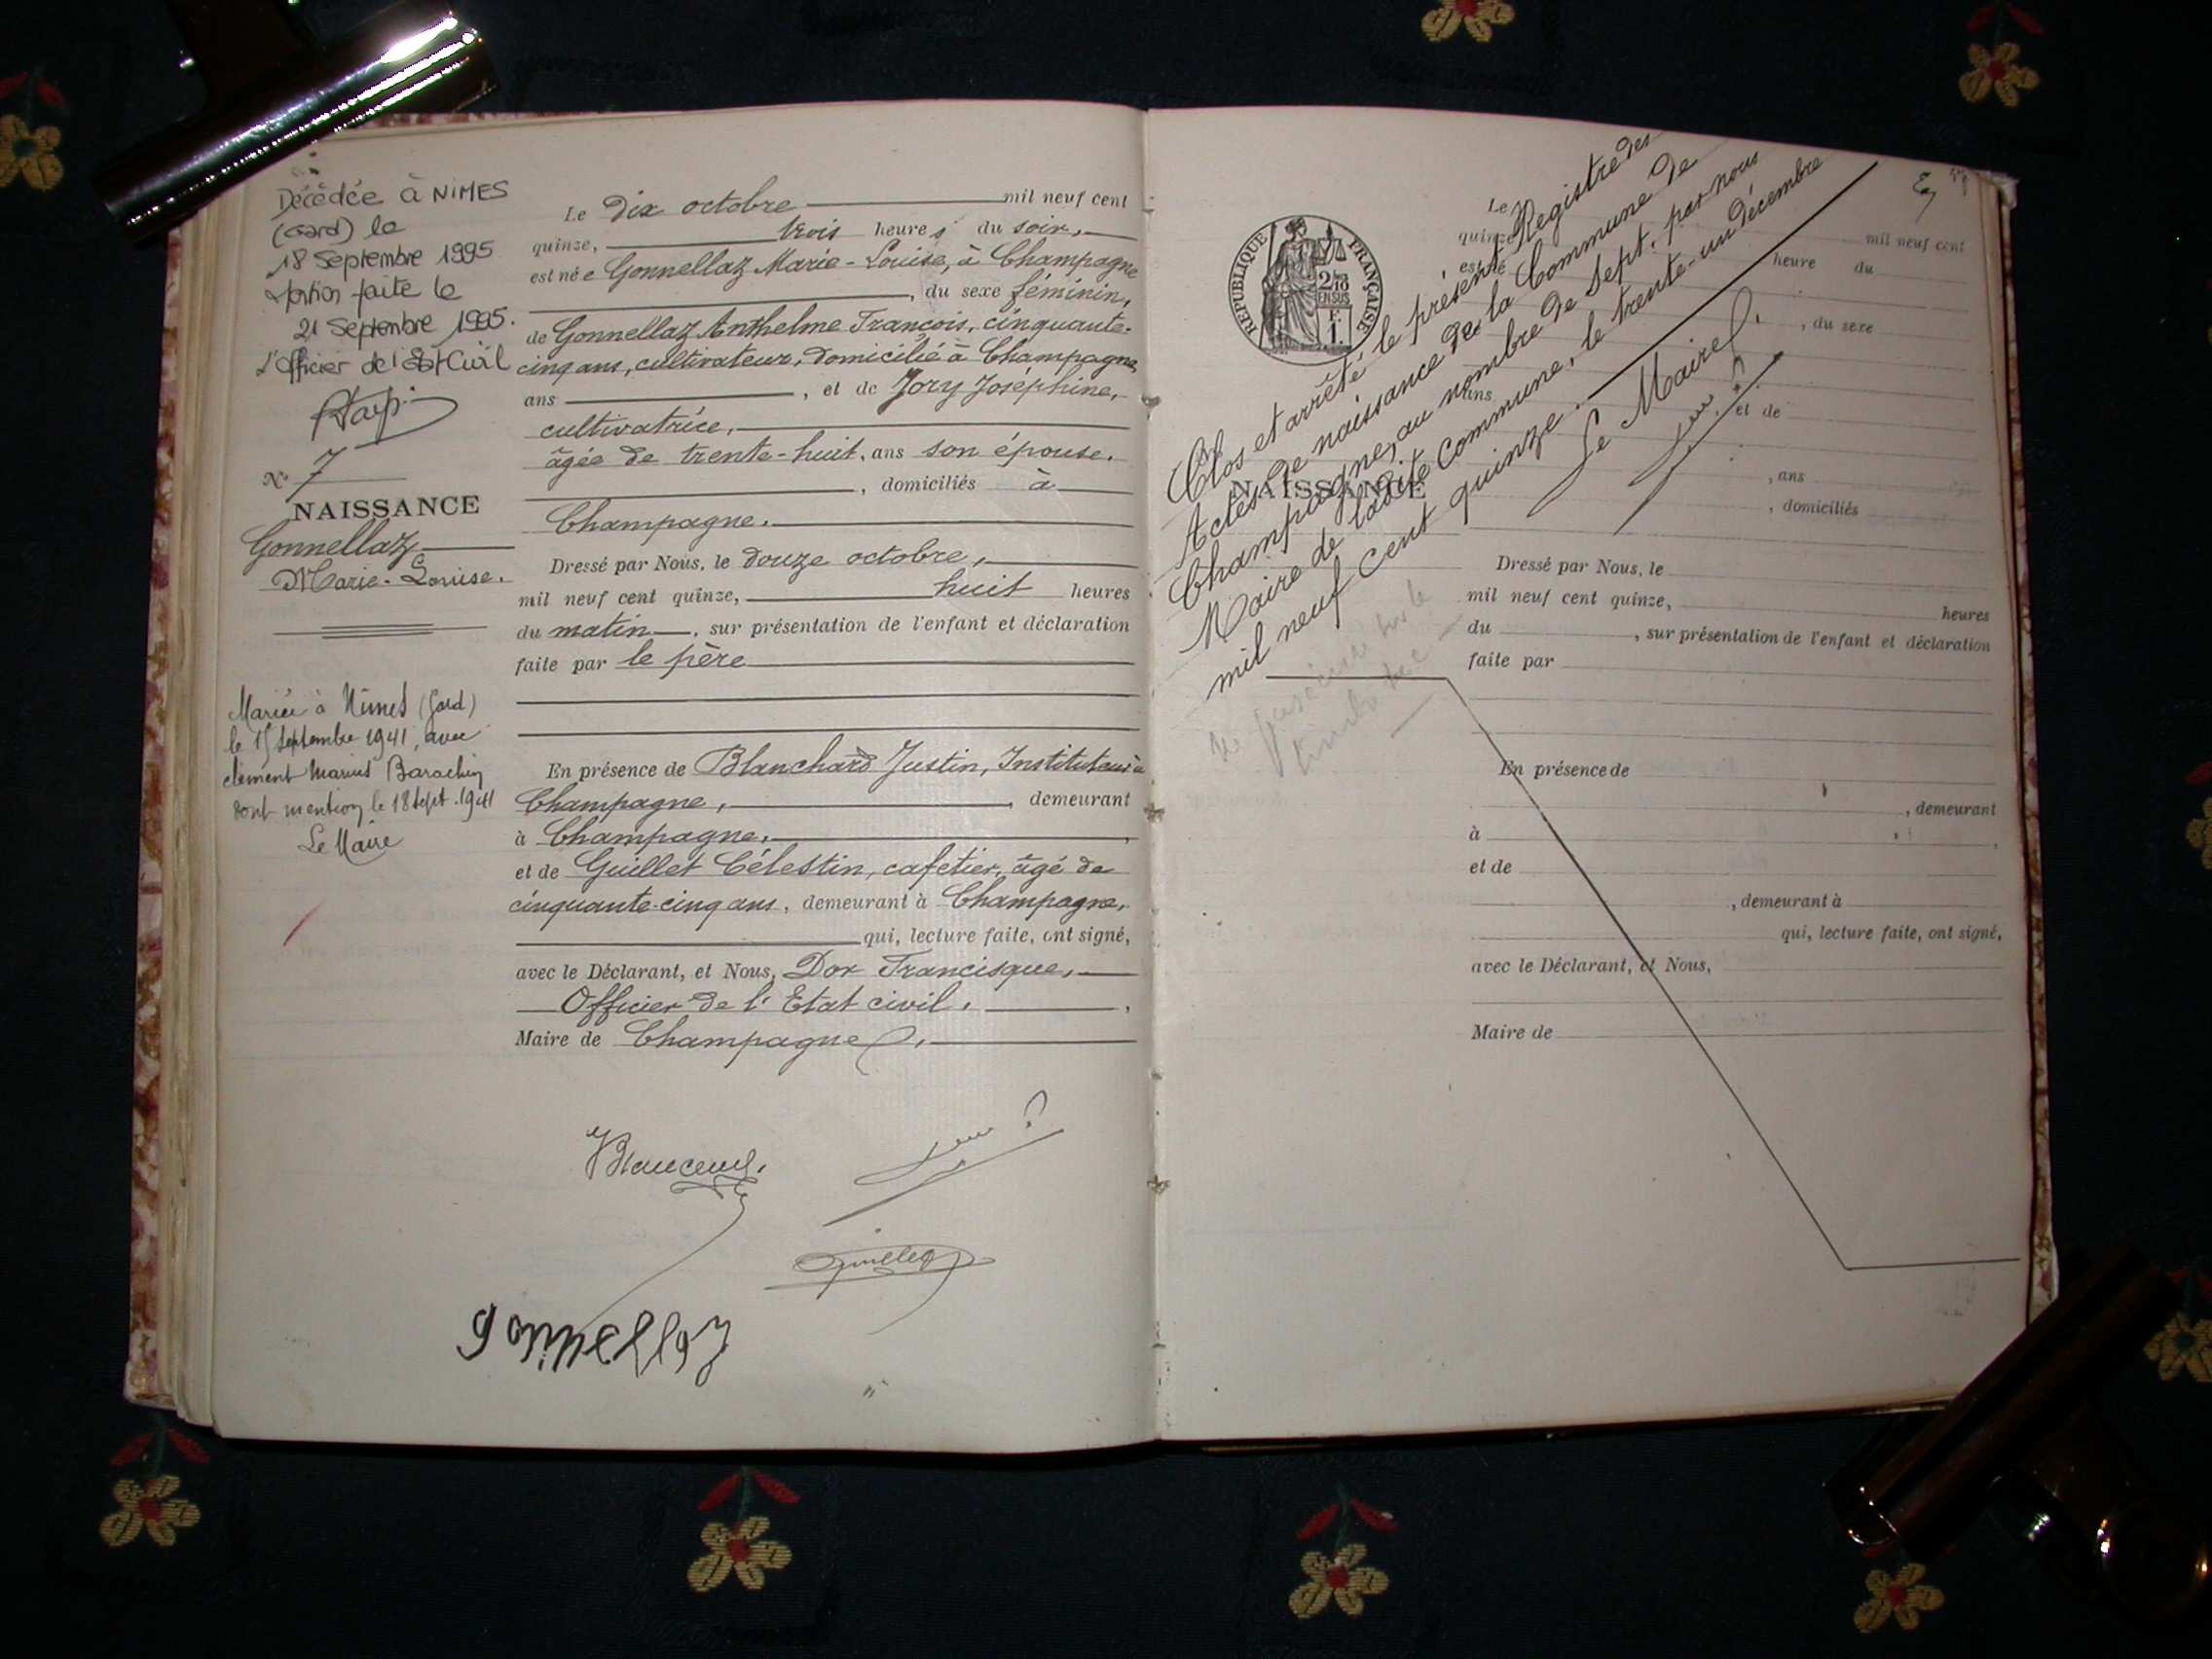 Décédée à NIMES
(Gard) le
18 Septembre 1995
mention faite le
21 Septembre 1995.
L'Officier de l'Etat Civil
N° 7
NAISSANCE
Gonnellaz
Marie-Louise.
Mariée à Nîmes (Gard)
le 15 Septembre 1941, avec
clément Marius
dont mention le 18 sept. 1941
Le Maire
Le dix octobre mil neuf cent
quinze, trois heures du soir,
est née Gonnellaz Marie-Louise, à Champagne
, du sexe féminin,
de Gonnellaz Anthelme François, cinquante-
cinq ans, cultivateur, domicilié à Champagne
ans , et de Jory Joséphine,
cultivatrice,
âgée de trente-huit, ans son épouse.
, domiciliés à
Champagne.
Dressé par Nous, le douze octobre,
mil neuf cent quinze, huit heures
du matin , sur présentation de l'enfant et déclaration
faite par le père
En présence de Blanchard Justin, Instituteur à
Champagne, , demeurant
à Champagne,
et de Guillet Célestin, cafetier, âgé de
cinquante-cinq ans, demeurant à Champagne,
qui, lecture faite, ont signé,
avec le Déclarant, et Nous, Dor Francisque,
Officier de l'Etat civil,
Maire de Champagne.
gonnellaz
REPUBLIQUE FRANÇAISE
2/10
EN SUS
F.
1.
N°
NAISSANCE
Clos et arrêté le présent Registre des
Actes de naissance de la Commune de
Champagne, au nombre de Sept, par nous
Maire de ladite Commune, le trente-un décembre
mil neuf cent quinze.
Le Maire
Le mil neuf cent
quinze, heure du
est né
, du sexe
ans et de
, ans
, domiciliés
Dressé par Nous, le
mil neuf cent quinze, heures
du , sur présentation de l'enfant et déclaration
faite par
En présence de
, demeurant
à
et de
, demeurant à
qui, lecture faite, ont signé,
avec le Déclarant, et Nous,
Maire de